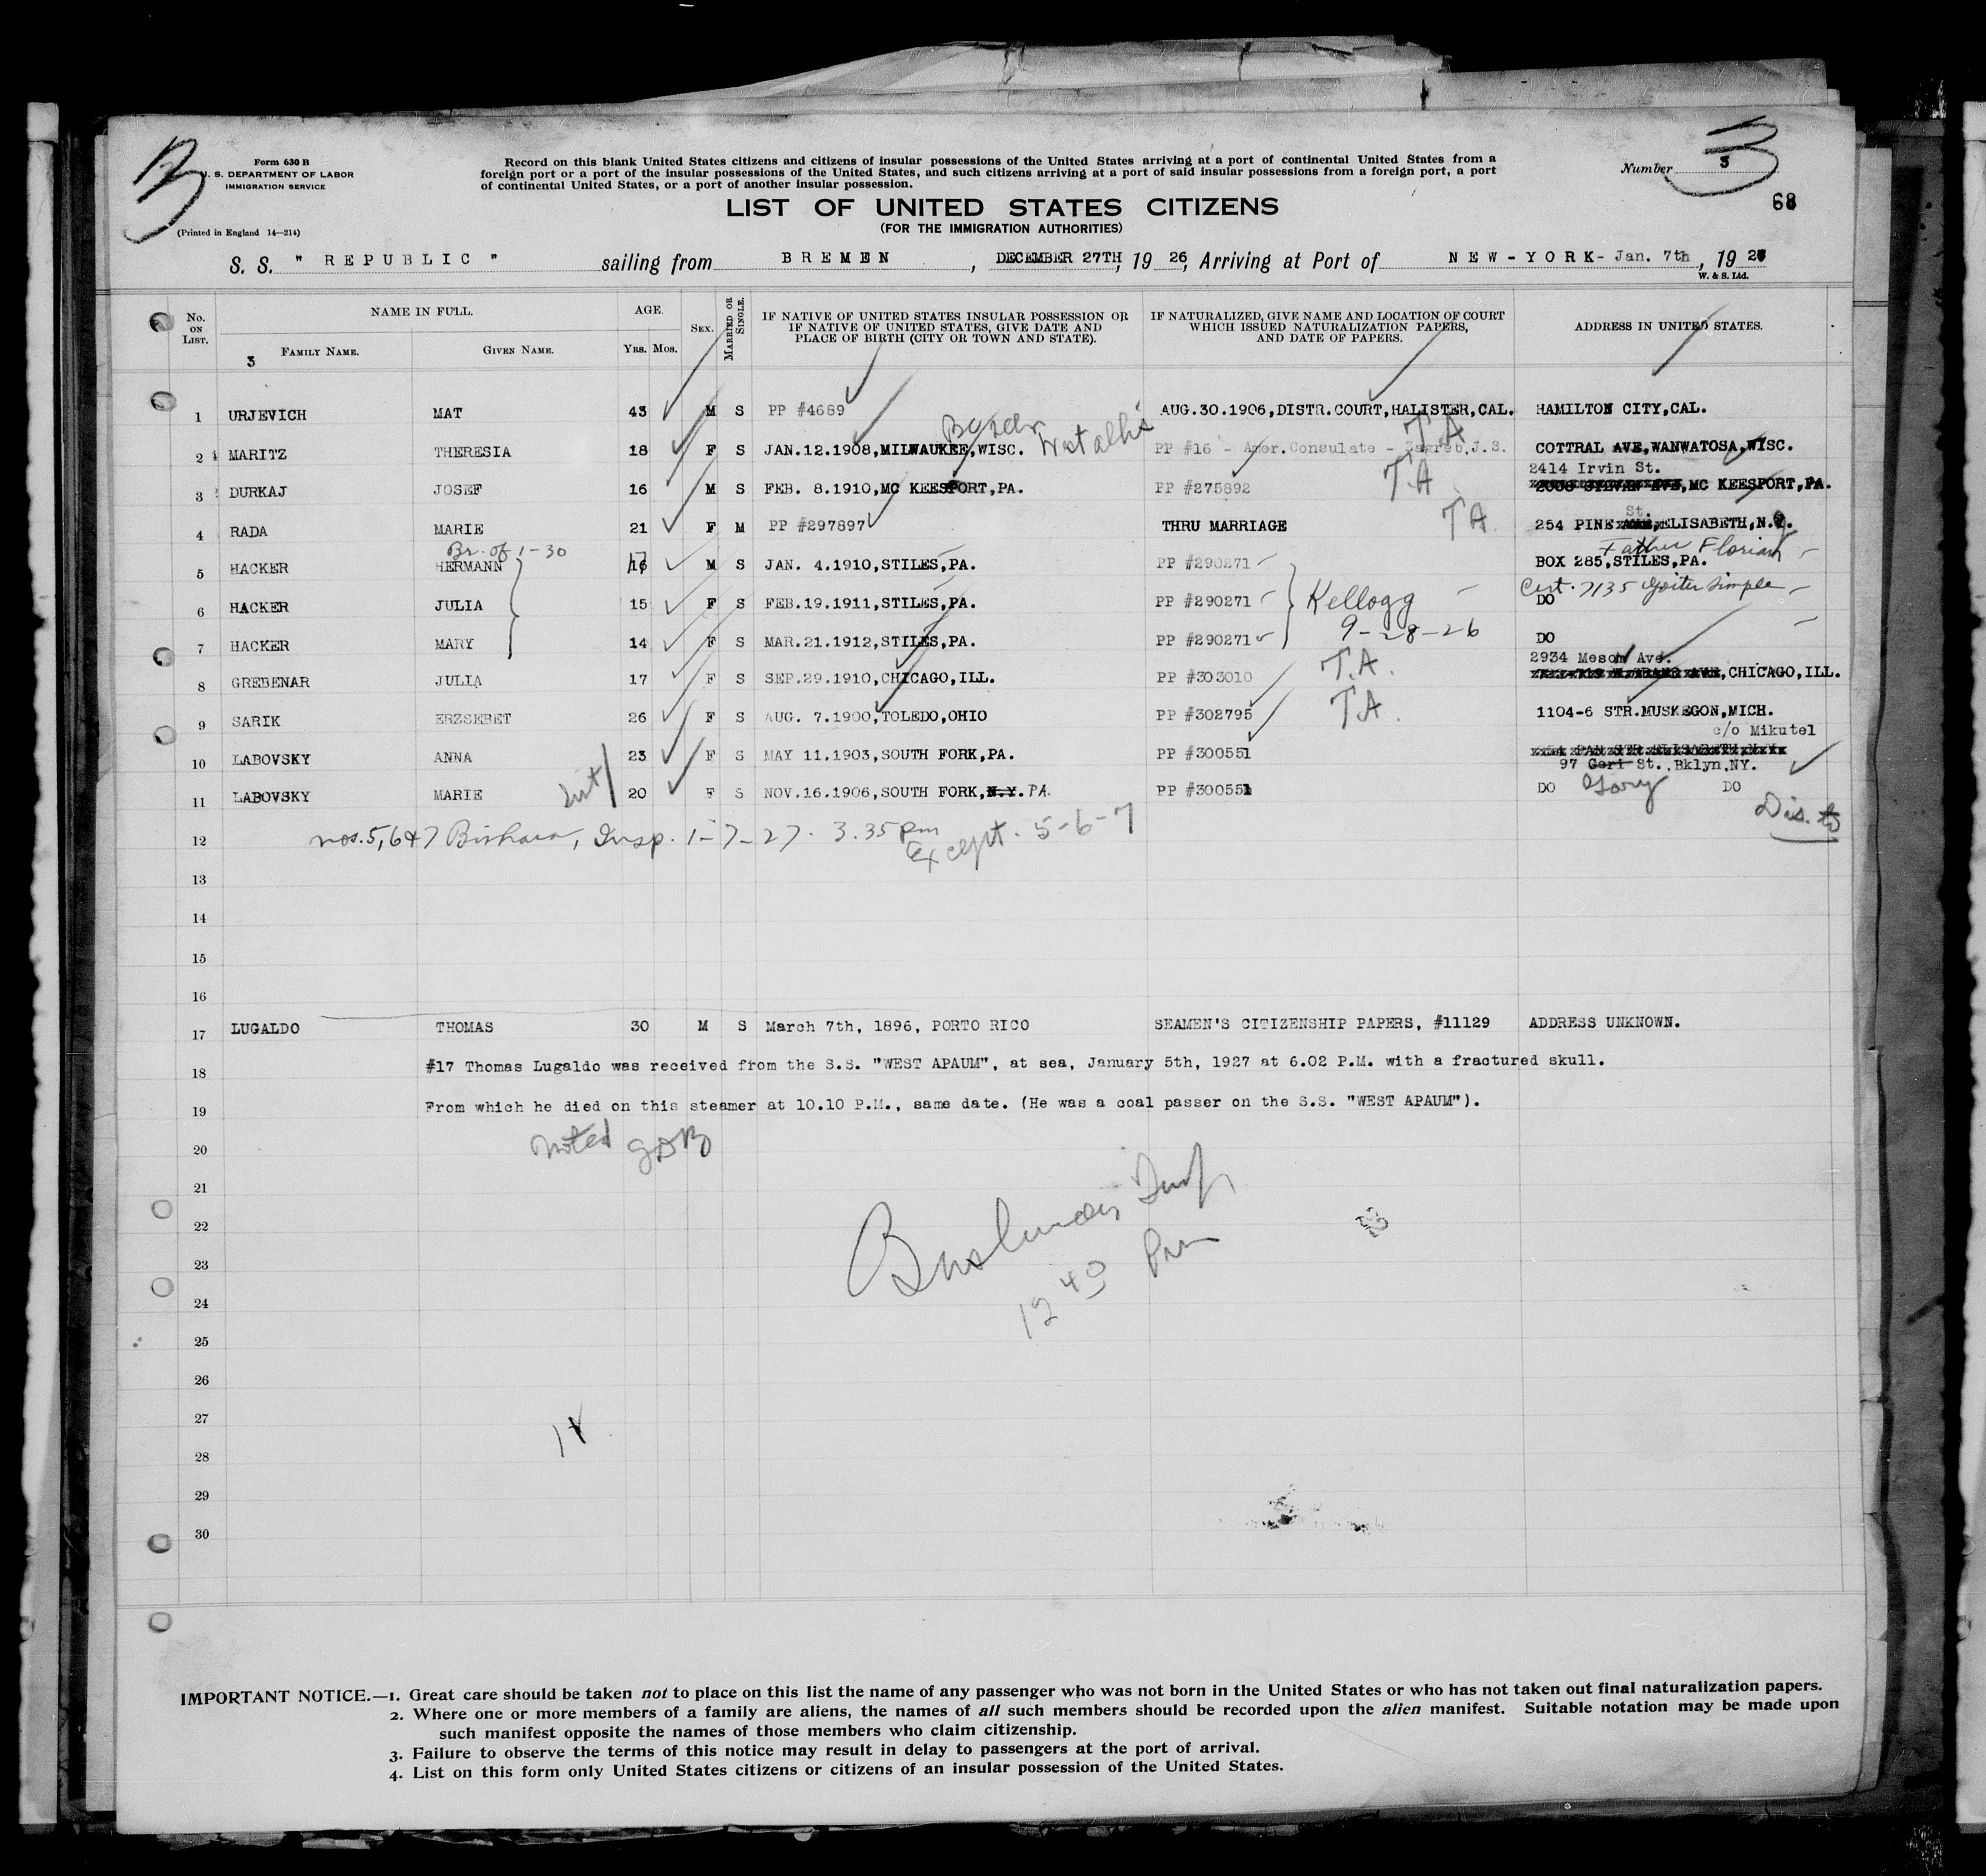 Form 630 B
U. S. DEPARTMENT OF LABOR
IMMIGRATION SERVICE
(Printed in England 14—214)
Record on this blank United States citizens and citizens of insular possessions of the United States arriving at a port of continental United States from a
foreign port or a port of the insular possessions of the United States, and such citizens arriving at a port of said insular possessions from a foreign port, a port
of continental United States, or a port of another insular possession.
Number 3
3
68
LIST OF UNITED STATES CITIZENS
(FOR THE IMMIGRATION AUTHORITIES)
S. S. " REPUBLIC " sailing from BREMEN, DECEMBER 27TH, 19 26, Arriving at Port of NEW-YORK- Jan. 7th, 19 27
W. & S. Ltd.
No. ON LIST. NAME IN FULL. AGE. SEX. MARRIED OR SINGLE. IF NATIVE OF UNITED STATES INSULAR POSSESSION OR IF NATIVE OF UNITED STATES, GIVE DATE AND PLACE OF BIRTH (CITY OR TOWN AND STATE). IF NATURALIZED, GIVE NAME AND LOCATION OF COURT WHICH ISSUED NATURALIZATION PAPERS, AND DATE OF PAPERS. ADDRESS IN UNITED STATES.
3 FAMILY NAME. GIVEN NAME. YRS. MOS.
1 URJEVICH MAT 43 M S PP #4689 AUG.30.1906,DISTR.COURT,HALISTER,CAL. HAMILTON CITY,CAL.
T A
2 MARITZ THERESIA 18 F S JAN.12.1908,MILWAUKEE,WISC. PP #16 - Amer.Consulate - Zagreb,J.S. COTTRAL AVE,WANWATOSA,WISC.
2414 Irvin St.
3 DURKAJ JOSEF 16 M S FEB. 8.1910,MC KEESPORT,PA. PP #275892 T.A ,MC KEESPORT,PA.
St.
4 RADA MARIE 21 F M PP #297897 THRU MARRIAGE T A. 254 PINE ,ELISABETH,N.J.
Br. of 1-30 Father Florian
5 HACKER HERMANN 17 M S JAN. 4.1910,STILES,PA. PP #290271 BOX 285,STILES,PA.
Cert. 7135 goiter simple
6 HACKER JULIA 15 F S FEB.19.1911,STILES,PA. PP #290271 Kellogg DO
9-28-26
7 HACKER MARY 14 F S MAR.21.1912,STILES,PA. PP #290271 DO
2934 Meson Ave.
8 GREBENAR JULIA 17 F S SEP.29.1910,CHICAGO,ILL. PP #303010 T.A. ,CHICAGO,ILL.
9 SARIK ERZSEBET 26 F S AUG. 7.1900,TOLEDO,OHIO PP #302795 T.A. 1104-6 STR.MUSKEGON,MICH.
c/o Mikutel
10 LABOVSKY ANNA 23 F S MAY 11.1903,SOUTH FORK,PA. PP #300551
97 Geri St.,Bklyn,NY.
11 LABOVSKY MARIE 20 F S NOV.16.1906,SOUTH FORK,N.Y. PA. PP #300551 DO Gory DO
Dis. to
12 nos. 5, 6 & 7 Insp. 1-7-27. 3.35 pm
Except. 5-6-7
13
14
15
16
17 LUGALDO THOMAS 30 M S March 7th, 1896, PORTO RICO SEAMEN'S CITIZENSHIP PAPERS, #11129 ADDRESS UNKNOWN.
18 #17 Thomas Lugaldo was received from the S.S. "WEST APAUM", at sea, January 5th, 1927 at 6.02 P.M. with a fractured skull.
19 From which he died on this steamer at 10.10 P.M., same date. (He was a coal passer on the S.S. "WEST APAUM").
20 noted
21
22
23
12 40 Pm
24
25
26
27
28
29
30
IMPORTANT NOTICE.—1. Great care should be taken not to place on this list the name of any passenger who was not born in the United States or who has not taken out final naturalization papers.
2. Where one or more members of a family are aliens, the names of all such members should be recorded upon the alien manifest. Suitable notation may be made upon
such manifest opposite the names of those members who claim citizenship.
3. Failure to observe the terms of this notice may result in delay to passengers at the port of arrival.
4. List on this form only United States citizens or citizens of an insular possession of the United States.